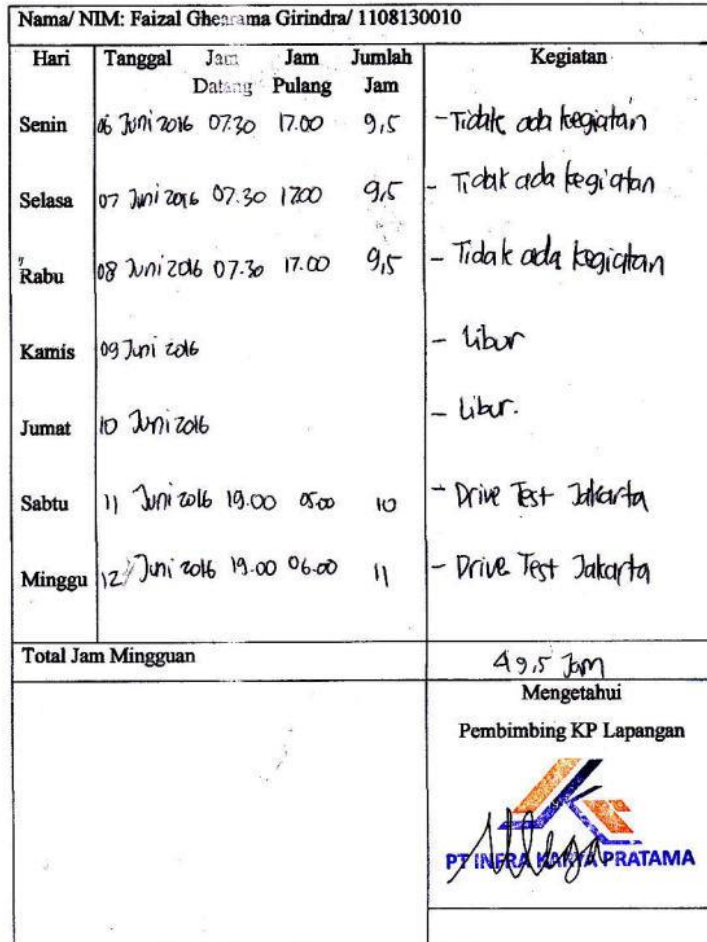 Nama/ NIM: Faizal Ghearama Girindra/ 1108130010
Hari Tanggal Jam Datang Jam Pulang Jumlah Jam Kegiatan
Senin 06 Juni 2016 07.30 17.00 9,5 - Tidak ada kegiatan
Selasa 07 Juni 2016 07.30 17.00 9,5 - Tidak ada kegiatan
Rabu 08 Juni 2016 07.30 17.00 9,5 - Tidak ada kegiatan
Kamis 09 Juni 2016 - Libur
Jumat 10 Juni 2016 - Libur.
Sabtu 11 Juni 2016 19.00 05.00 10 - Drive Test Jakarta
Minggu 12 Juni 2016 19.00 06.00 11 - Drive Test Jakarta
Total Jam Mingguan 49,5 Jam
Mengetahui
Pembimbing KP Lapangan
PT INFRA KARYA PRATAMA